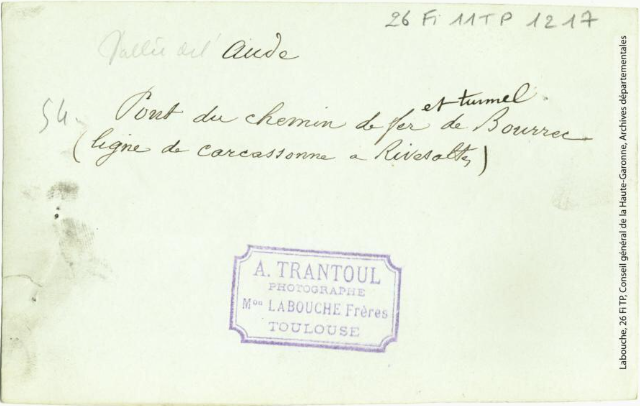 26 Fi 11 TP 1217
Vallée de l'Aude
54. Pont du chemin de fer et tunnel de Bourrec
(ligne de carcassonne a Rivesaltes)
A. TRANTOUL
PHOTOGRAPHE
Mon LABOUCHE Frères
TOULOUSE
Labouche, 26 Fi TP, Conseil général de la Haute-Garonne, Archives départementales